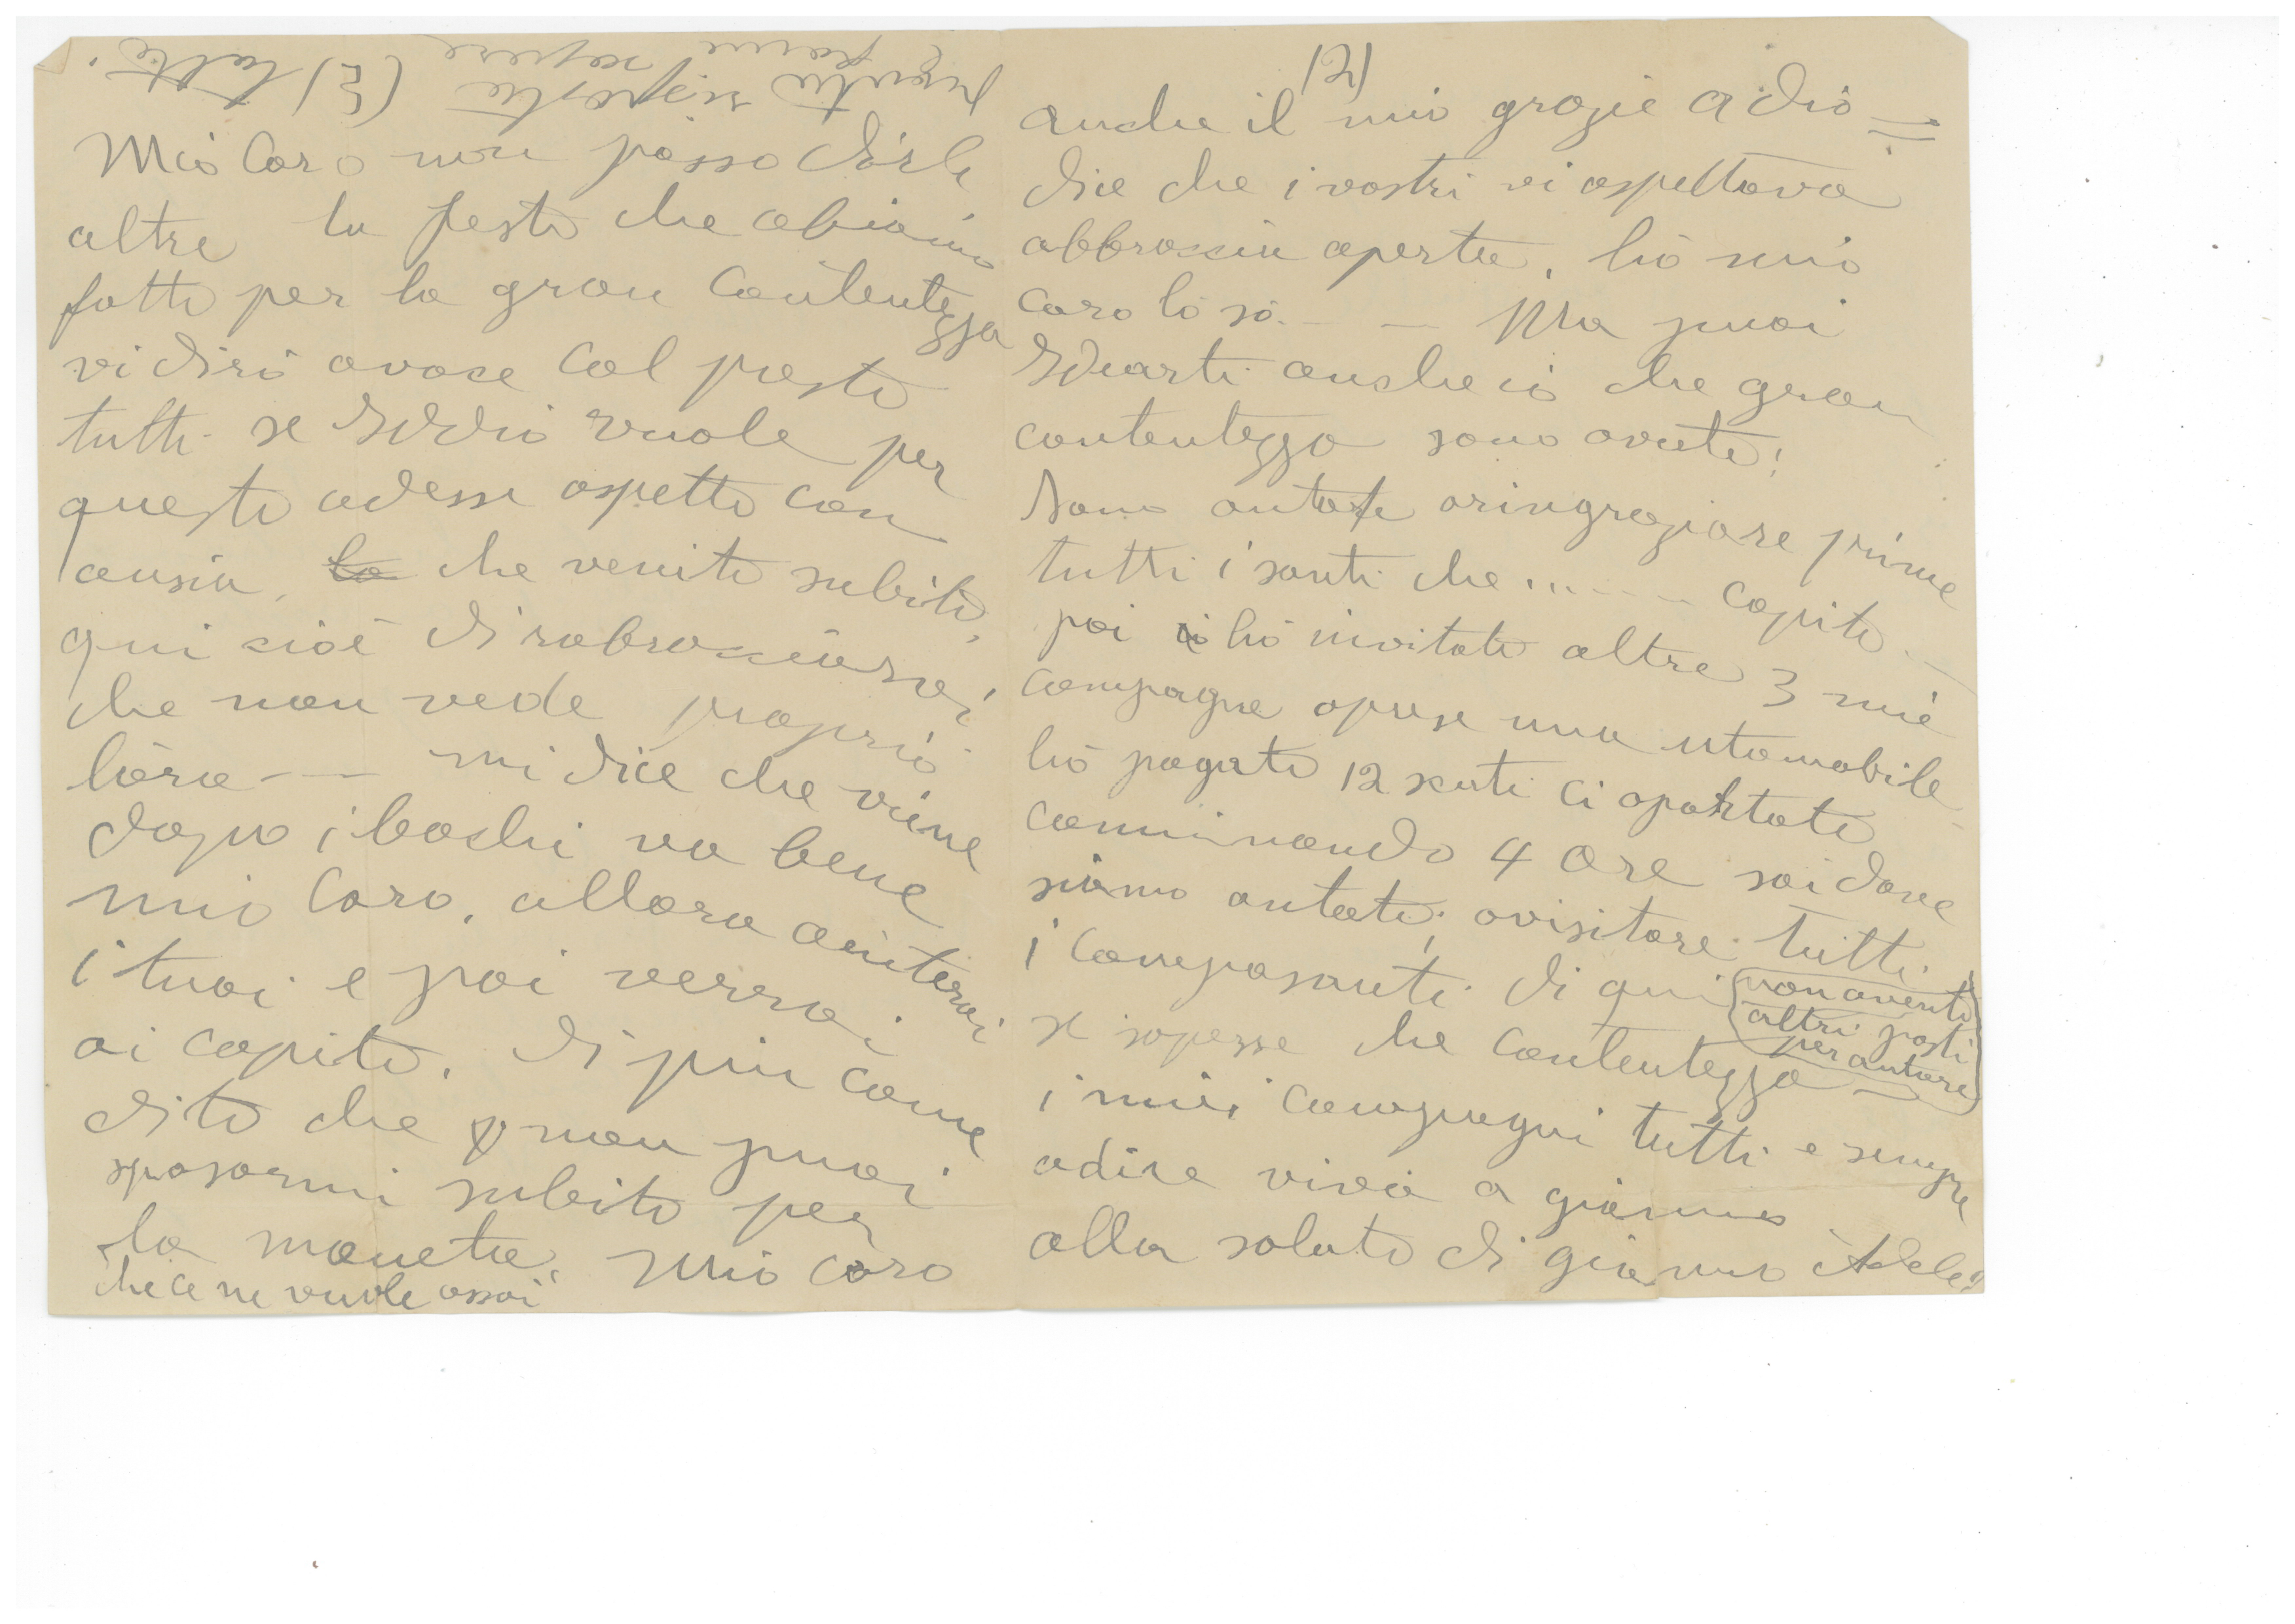 pronta risposta (2) tutto.
e fame sapere
Mio Caro non posso dirle
altre la festa che abiamo
fatto per la gran Contentezza
vi dirò avoce Col presto
tutti se Iddio vuole per
questo adesso aspetto con
ansia, la che venite subito,
qui cioè di rabracciarsi,
che non vede proprio
lora -- mi dice che viene
dopo i bachi va bene
mio Caro, allora aiuterai
i tuoi e poi verrai
ai capito, di piu come
dito che non puoi
sposarmi subito per
la moneta, Mio Caro
che ce ne vuole assai
(2)
anche il mio grazie a dio =
dice che i vostri vi aspettava
abbraccia aperte, lió mio
caro ló só. - - Ma puoi
Iduarti anche ió che gran
contentezza sono avute!
Sono antate aringraziare prime
tutti i santi che ... --- capito -
poi hó invitato altre 3 mie
compagne oprese una utomobile
hó pagato 12 scuti ci aportato
caminando 4 ore sai dove
siamo antate, avisitare tutti
i Camposanti di qui (non aventi
altri posti
per antare)
se sapesse che Contentezza -
i miei Compagni tutti e sempre
adire viva a gianno
alla salute di gianno Adele!!